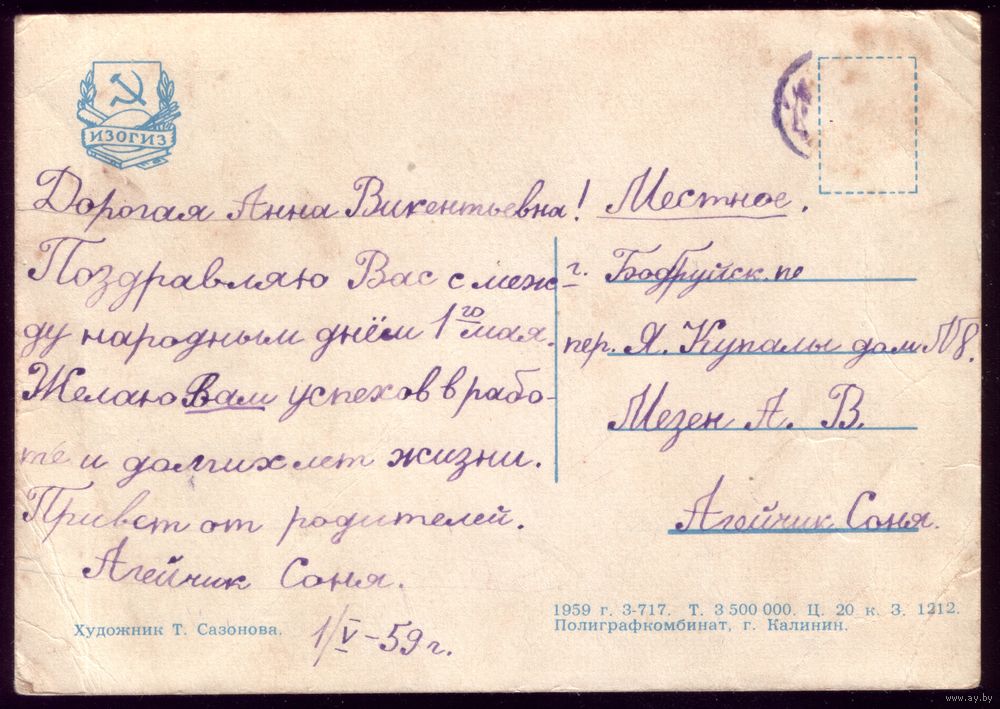 ИЗОГИЗ
Дорогая Анна Викентьевна!
Поздравляю Вас с меж-
ду народным днём 1го мая.
Желаю Вам успехов в рабо-
те и долгих лет жизни.
Привет от родителей.
Агейчик Соня.
1/V-59г.
Художник Т. Сазонова.
Местное.
г. Бобруйск. пе
пер. Я. Купалы дом №8.
Мезен А. В.
Агейчик Соня.
1959 г. З-717. Т. 3 500 000. Ц. 20 к. З. 1212.
Полиграфкомбинат, г. Калинин.
www.ay.by